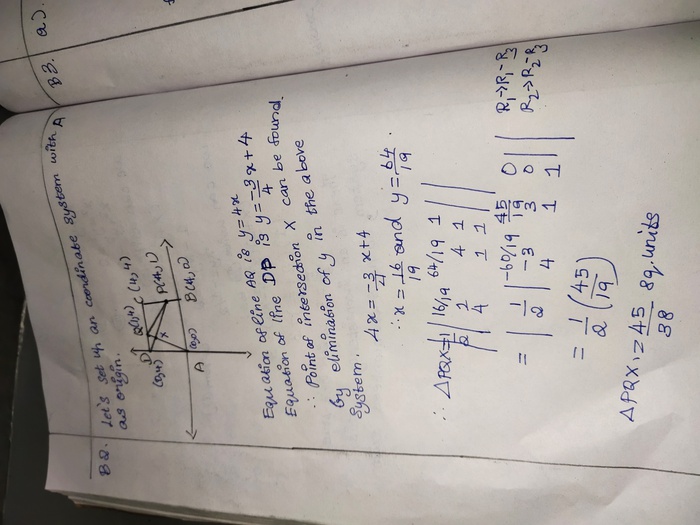 B2. Let's set up an coordinate system with A
as origin.
B3. a).
D Q(1,4) C (4,4)
(0,4)
X P(4,1)
A (0,0) B(4,0)
Equation of line AQ is y=4x
Equation of line DP is y=-3/4 x+4
∴ Point of intersection X can be found
by elimination of y in the above
system.
4x = -3/4 x+4
∴ x = 16/19 and y = 64/19.
∴ △PQX = | 1/2 | 16/19 64/19 1 | |
1 4 1
4 1 1
= | 1/2 | -60/19 45/19 0 | | R₁→R₁-R₃
-3 3 0 R₂→R₂-R₃
4 1 1
= 1/2 (45/19)
△PQX = 45/38 sq.units